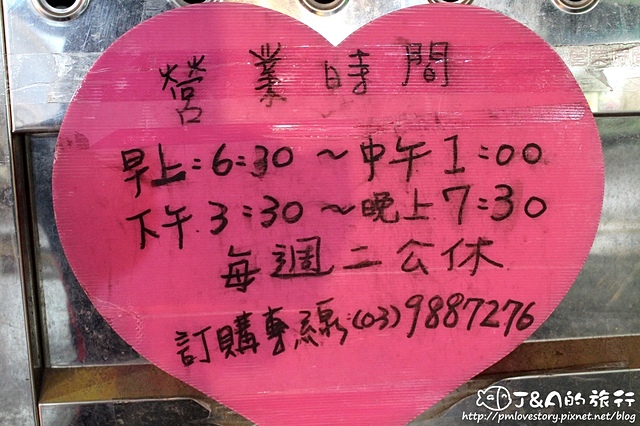 營業時間
早上:6:30~中午1:00
下午3:30~晚上7:30
每週二公休
訂購專線:(03)9887276
J&A的旅行
http://pmlovestory.pixnet.net/blog